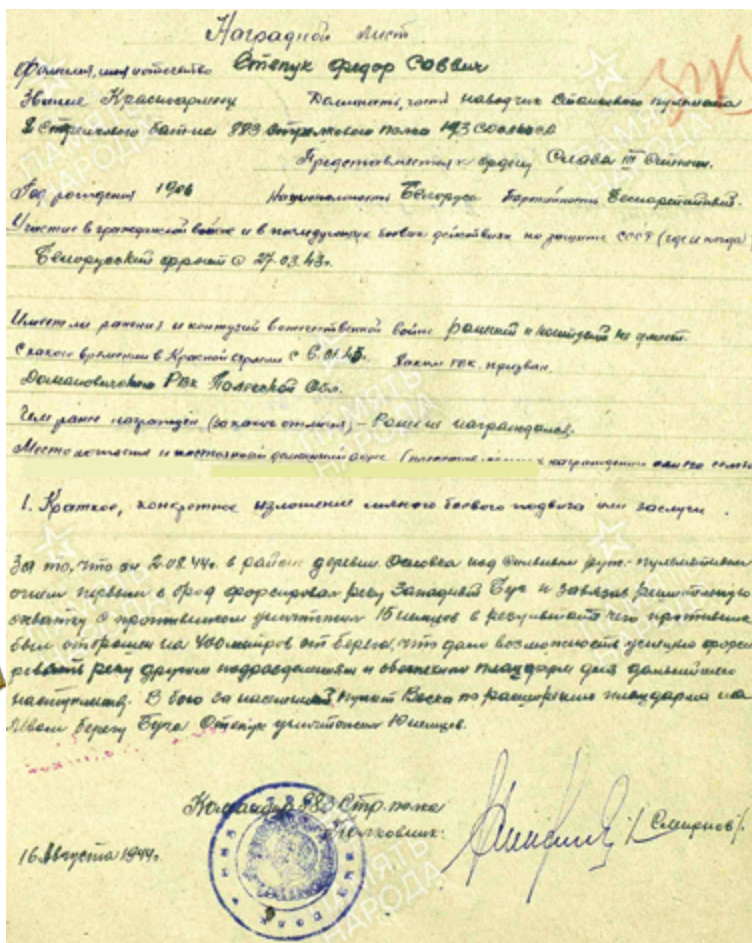 Наградной лист
Фамилия, имя и отчество Степук Федор Саввич
Звание Красноармеец Должность, часть наводчик станкового пулемета
2 стрелкового бат-на 883 стрелкового полка 193 СД
Представляется к ордену Слава III степени.
Год рождения 1906 Национальность Белорус Партийность Беспартийный.
Участие в гражданской войне и в последующих боевых действиях по защите СССР (где и когда)
Белорусский фронт с 27.03.43г.
Имеет ли ранения и контузии в отечественной войне ранений и контузий не имеет.
С какого времени в Красной Армии с Каким РВК призван
Домановичским РВК Полесской Обл.
Чем ранее награжден (за какие отличия) – Ранее не награждался.
Место жительства и постоянный домашний адрес награждении его семьи
1. Краткое, конкретное изложение личного боевого подвига или заслуги.
За то, что он 2.08.44г. в районе деревни под сильным руж.-пулеметным
огнем первым в брод форсировал реку Западный Буг и завязав решительную
схватку с противником уничтожил 15 немцев в результате чего противник
был отброшен на 400 метров от берега, что дало возможность успешно форси
ровать реку другим подразделениям и обеспечить плацдарм для дальнейшего
наступления. В бою за населенный пункт по расширению плацдарма на
берегу Буга Степук уничтожил 10 немцев.
Командир 883 Стр. полка
Полковник: /Смирнов/.
16 Августа 1944г.
ПАМЯТЬ НАРОДА